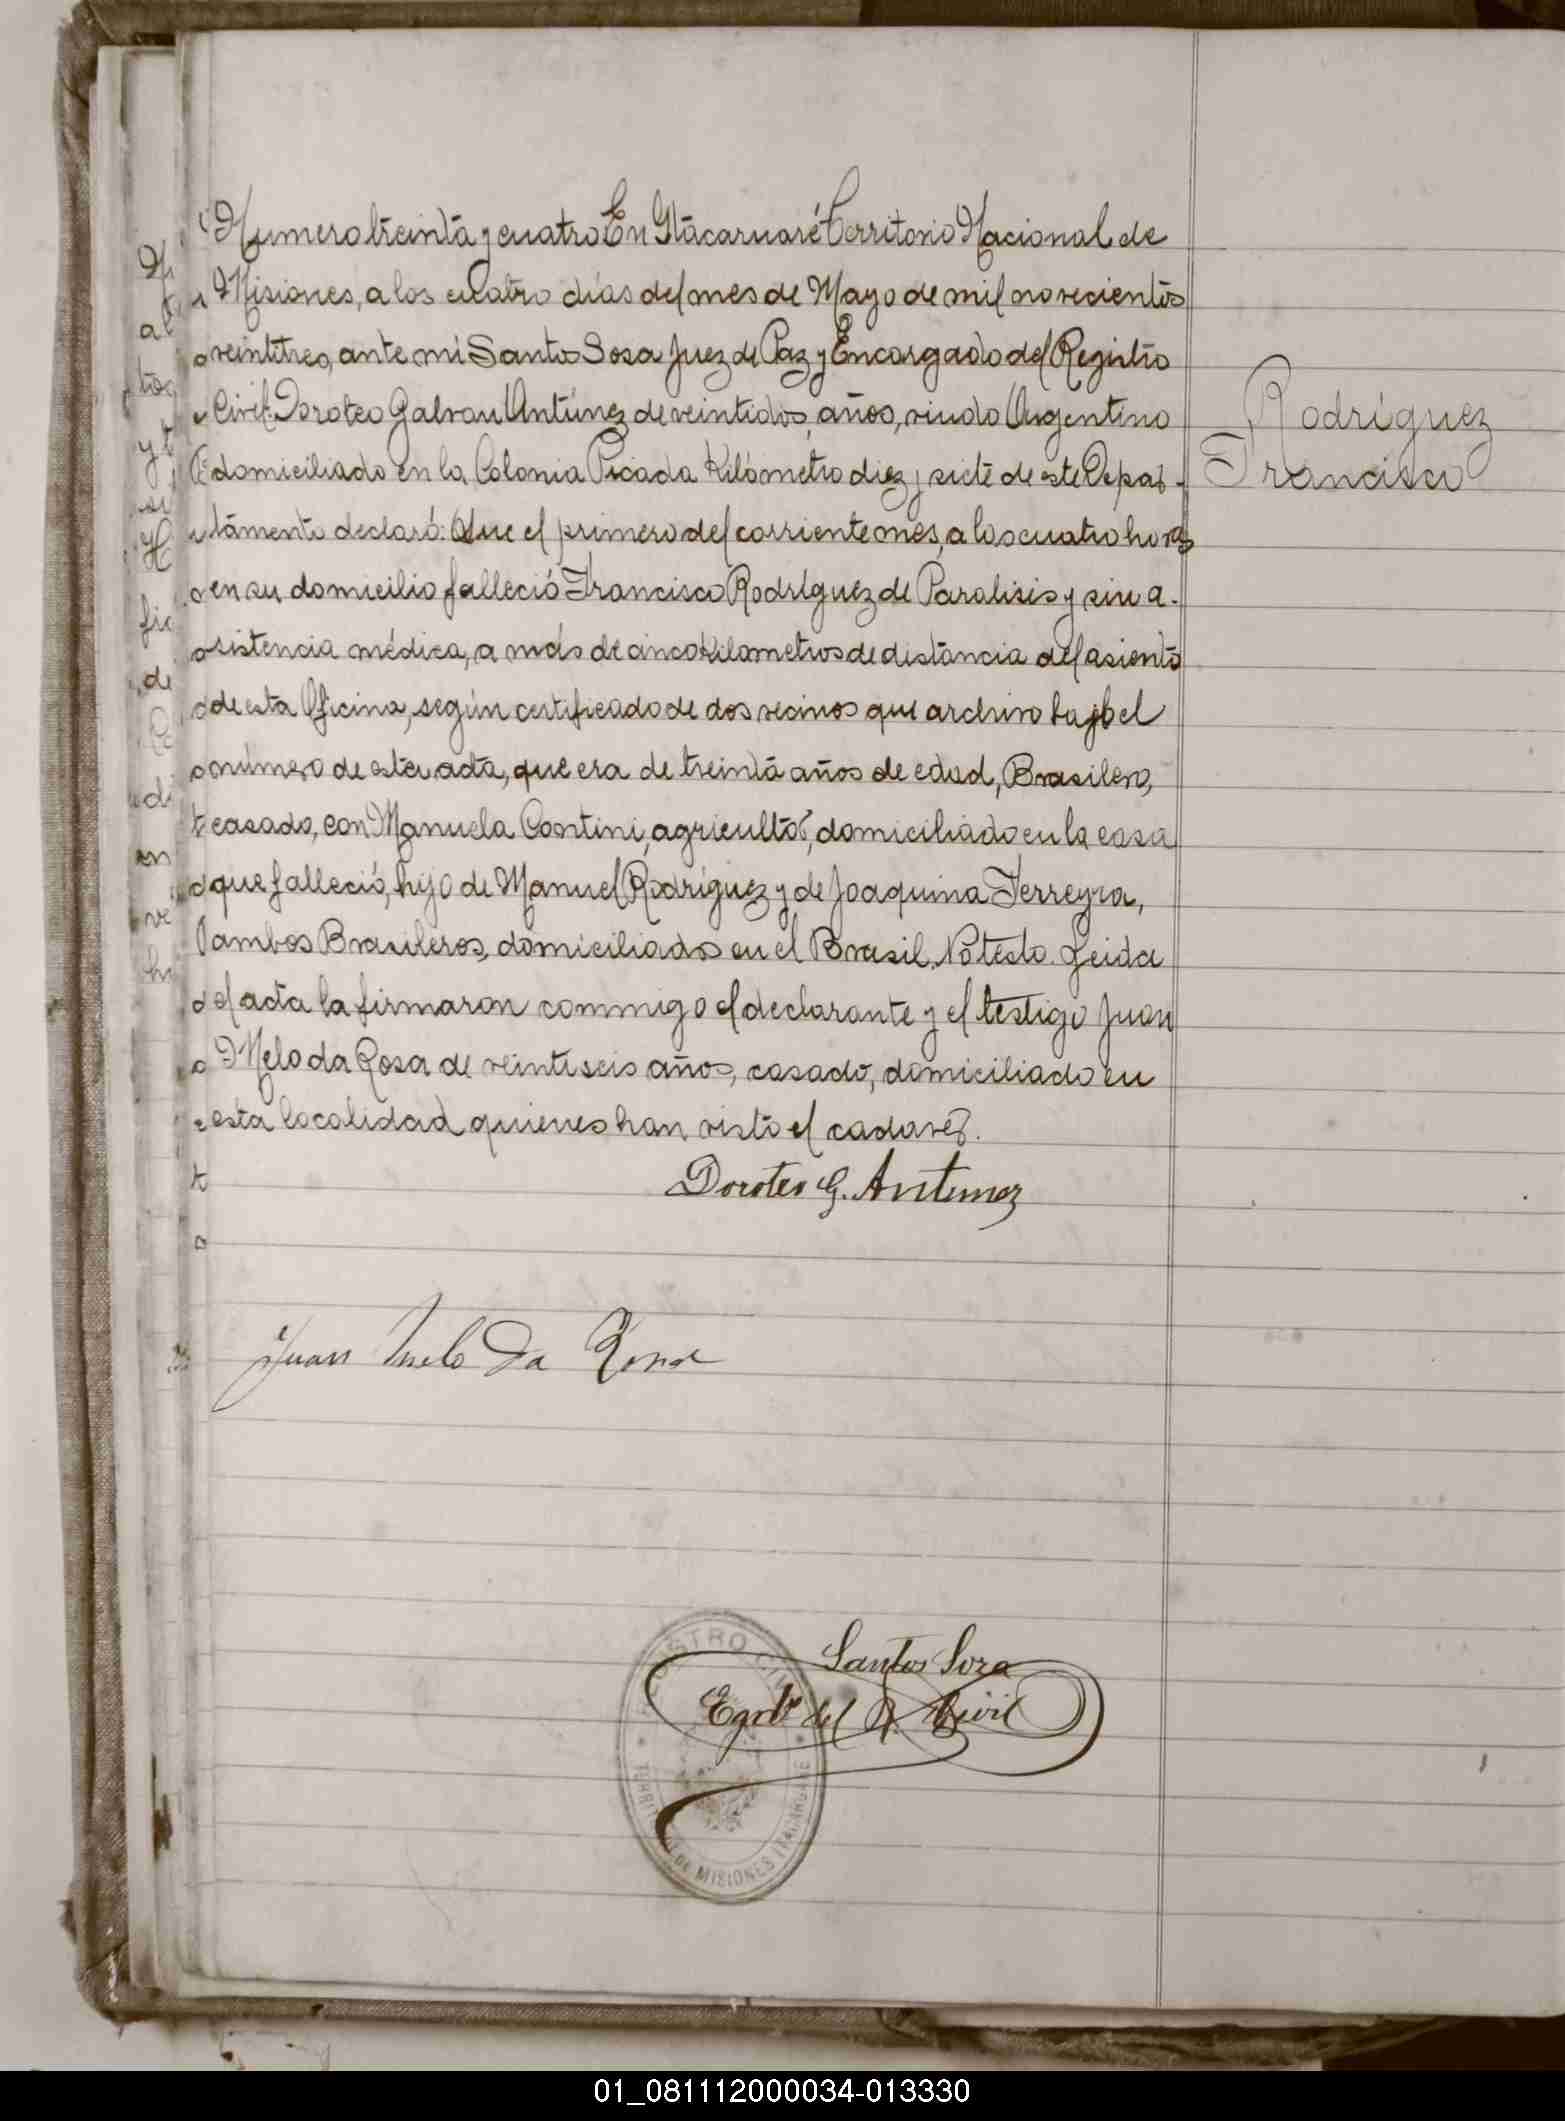 Numero treinta y cuatro En Itacaruaré Territorio Nacional de
Misiones, a los cuatro días del mes de Mayo de mil novecientos
veintitres, ante mi Santos Sosa Juez de Paz y Encargado del Registro
Civil: Doroteo Galvan Antúnez de veintidos años, viudo Argentino
domiciliado en la Colonia Picada Kilómetro diez y siete de este Depar-
tamento declaró: Que el primero del corriente mes, a las cuatro horas
en su domicilio falleció Francisco Rodríguez de Paralisis y sin a-
sistencia médica, a más de cinco Kilometros de distancia del asiento
de esta Oficina, según certificado de dos vecinos que archivo bajo el
número de esta acta, que era de treinta años de edad, Brasilero,
casado, con Manuela Contini, agricultor, domiciliado en la casa
que falleció, hijo de Manuel Rodríguez y de Joaquina Ferreyra,
ambos Brasileros, domiciliados en el Brasil. No testo. Leida
el acta la firmaron conmigo el declarante y el testigo Juan
Melo da Rosa de veintiseis años, casado, domiciliado en
esta localidad quienes han visto el cadaver.
Rodríguez
Francisco
Doroteo G. Antunez
Juan Melo Da Rosa
Santos Sosa
Egdo del R. Civil
REGISTRO CIVIL
TERRITORIO DE MISIONES ITACARUARE
01_081112000034-013330